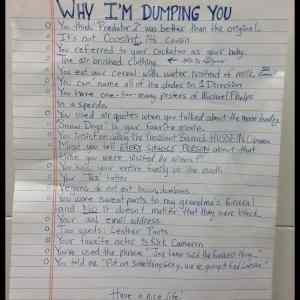 WHY I'M DUMPING YOU
You think "Predator 2" was better than the original.
It's not Cousint, It's cousin
You referred to your cockatoo as your baby.
Two words: Air brushed clothing
You eat your cereal with water instead of milk.
You can name all of the dudes in 1 Direction
You have one too many posters of Michael Phelps
in a speedo.
You used air quotes when you talked about the moon landing
Snow Dogs is your favorite movie.
You insist on calling the President Barack HUSSEIN Obama
Must you tell EVERY SINGLE PERSON about that
time you were visited by aliens?!
You had your entire family in the
Your tattoo
Vegans do not eat
You wore sweat pants to my grandma's funeral
and NO it doesn't matter that they were black.
Your aol email address.
Two words: Leather Pants
Your favorite actor is Kirk Cameron
You've used the phrase, "I've
You told me "Put on something sexy, we're going to Red Lobster."
Have a nice life!